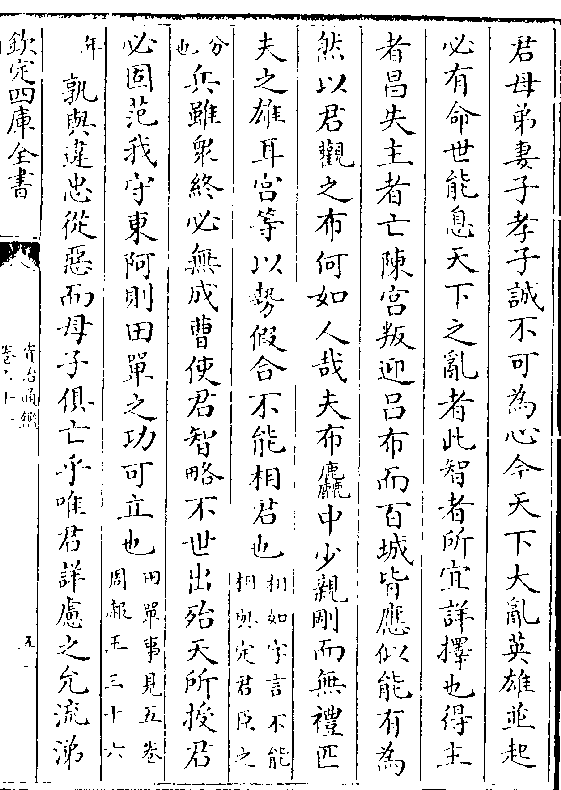 君母弟妻子孝子誠不可為心今天下大亂英雄並起
必有命世能息天下之亂者此智者所宜詳擇也得主
者昌失主者亡陳宮叛迎吕布而百城皆應似能有為
然以君觀之布何如人哉夫布麤中少親剛而無禮匹
夫之雄耳宮等以勢假合不能相君也相如字言不能相與定君臣之
分也兵雖衆終必無成曹使君智略不世出殆天所授君
必固范我守東阿則田單之功可立也田單事見五卷周赧王三十六
年孰與違忠從惡而母子俱亡乎唯君詳慮之允流涕
欽定四庫全書
資治通鑑
卷六十一
五